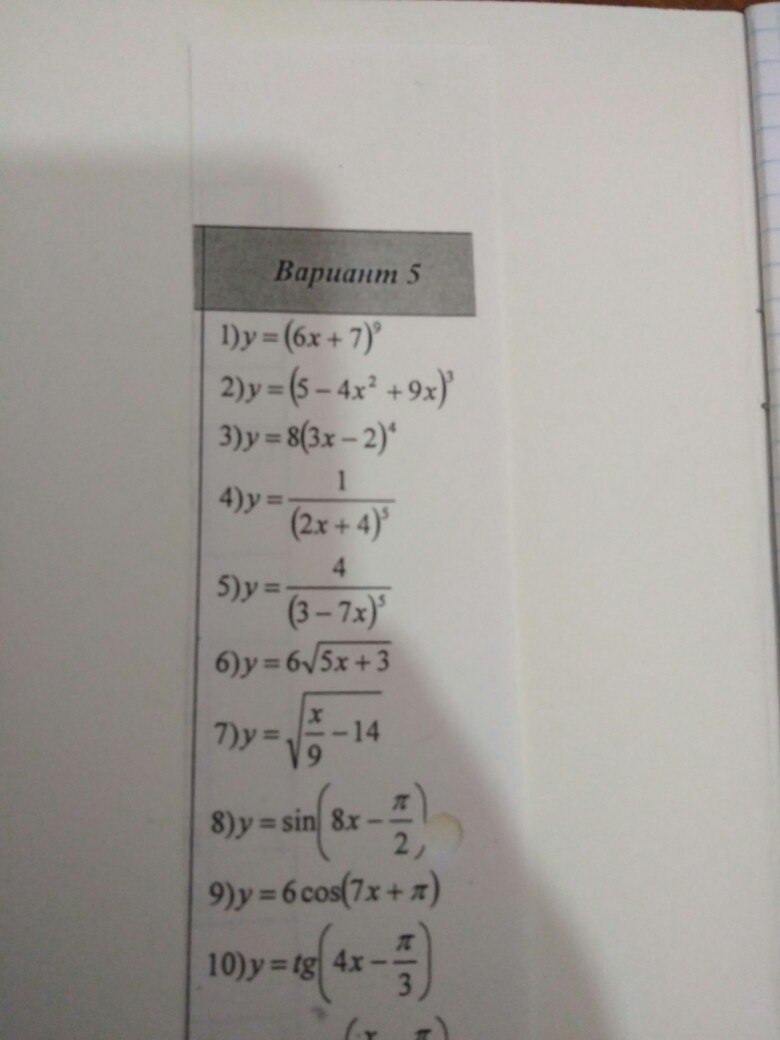 Вариант 5
1) y = (6x + 7)⁹
2) y = (5 − 4x² + 9x)³
3) y = 8(3x − 2)⁴
4) y = 1/(2x + 4)⁵
5) y = 4/(3 − 7x)⁵
6) y = 6√(5x + 3)
7) y = √(x/9 − 14)
8) y = sin(8x − π/2)
9) y = 6 cos(7x + π)
10) y = tg(4x − π/3)